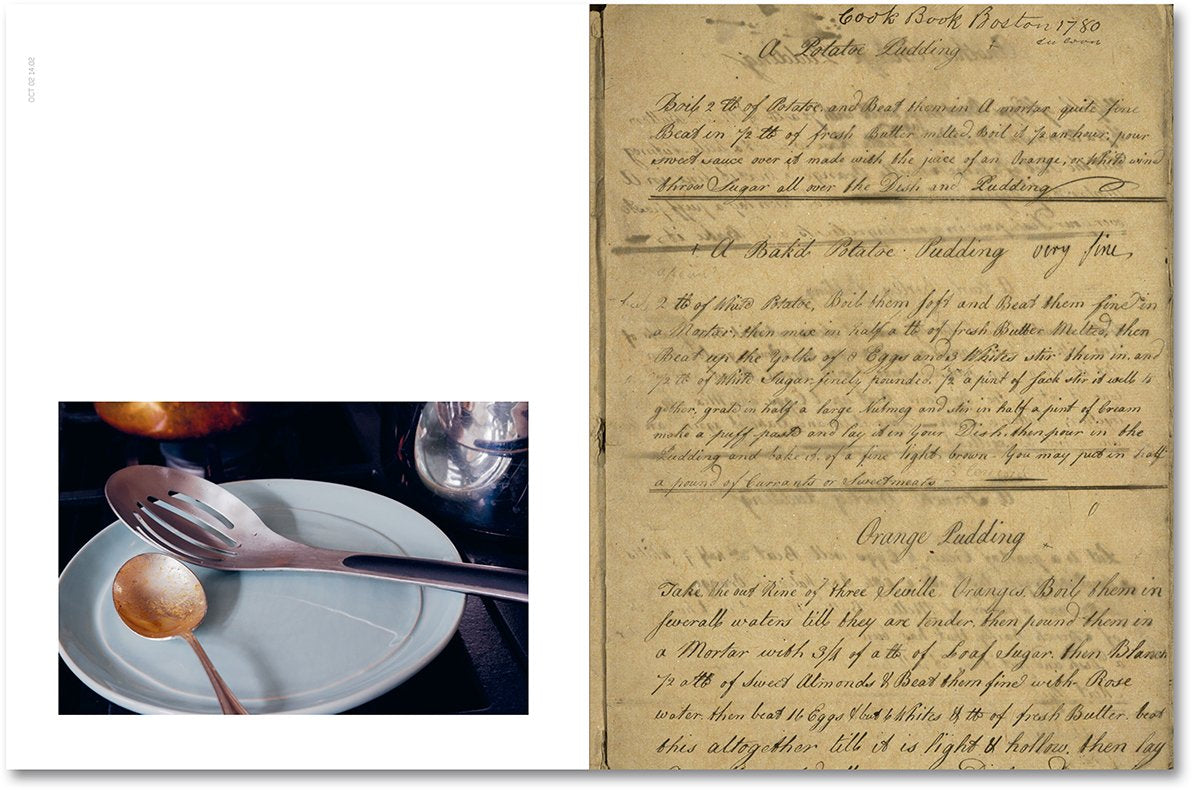 OCT 02 14:02
Cook Book Boston 1780
A Potatoe Pudding
Boil 2 lb of Potatoe, and Beat them in A mortar quite fine
Beat in 1/2 lb of fresh Butter milted, Boil it 1/2 an hour, pour
sweet sauce over it made with the juice of an Orange, or White wine
throw Sugar all over the Dish and Pudding
A Bak'd Potatoe Pudding very fine
2 lb of White Potatoe, Boil them soft and Beat them fine in
a Mortar, then mix in half a lb of fresh Butter Melted, then
Beat up the Yolks of 8 Eggs and 3 Whites stir them in, and
1/2 lb of White Sugar finely pounded, 1/2 a pint of Sack stir it well to
gether, grate in half a large Nutmeg and stir in half a pint of Cream
make a puff paste and lay it in Your Dish, then pour in the
Pudding and bake it of a fine light brown. You may put in half
a pound of Currants or Sweetmeats
Orange Pudding
Take the out Rine of three Seville Oranges, Boil them in
severall waters till they are tender, then pound them in
a Mortar with 3/4 of a lb of Loaf Sugar, then Blanch
1/2 a lb of Sweet Almonds & Beat them fine with Rose
water, then beat 16 Eggs & but 6 Whites & lb of fresh Butter, beat
this altogether till it is light & hollow, then lay